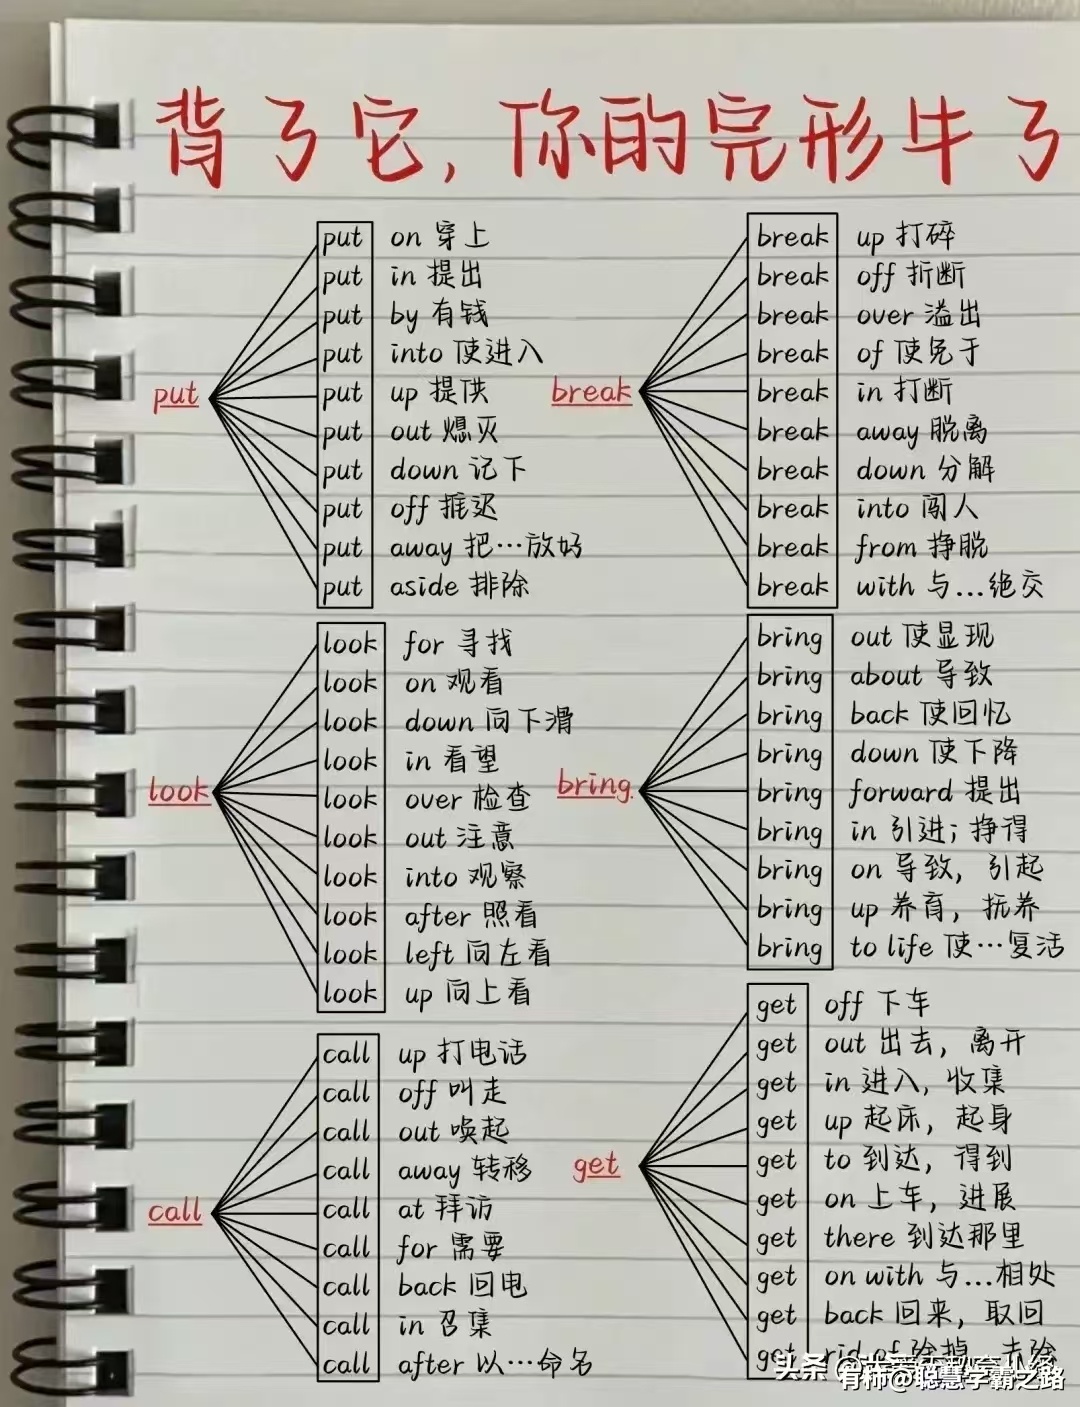 背了它，你的完形牛了
put
put on 穿上
put in 提出
put by 有钱
put into 使进入
put up 提供
put out 熄灭
put down 记下
put off 推迟
put away 把…放好
put aside 排除
break
break up 打碎
break off 折断
break over 溢出
break of 使免于
break in 打断
break away 脱离
break down 分解
break into 闯人
break from 挣脱
break with 与...绝交
look
look for 寻找
look on 观看
look down 向下滑
look in 看望
look over 检查
look out 注意
look into 观察
look after 照看
look left 向左看
look up 向上看
bring
bring out 使显现
bring about 导致
bring back 使回忆
bring down 使下降
bring forward 提出
bring in 引进；挣得
bring on 导致，引起
bring up 养育，抚养
bring to life 使…复活
call
call up 打电话
call off 叫走
call out 唤起
call away 转移
call at 拜访
call for 需要
call back 回电
call in 召集
call after 以…命名
get
get off 下车
get out 出去，离开
get in 进入，收集
get up 起床，起身
get to 到达，得到
get on 上车，进展
get there 到达那里
get on with 与...相处
get back 回来，取回
get rid of 除掉，去除
头条
有柿@聪慧学霸之路